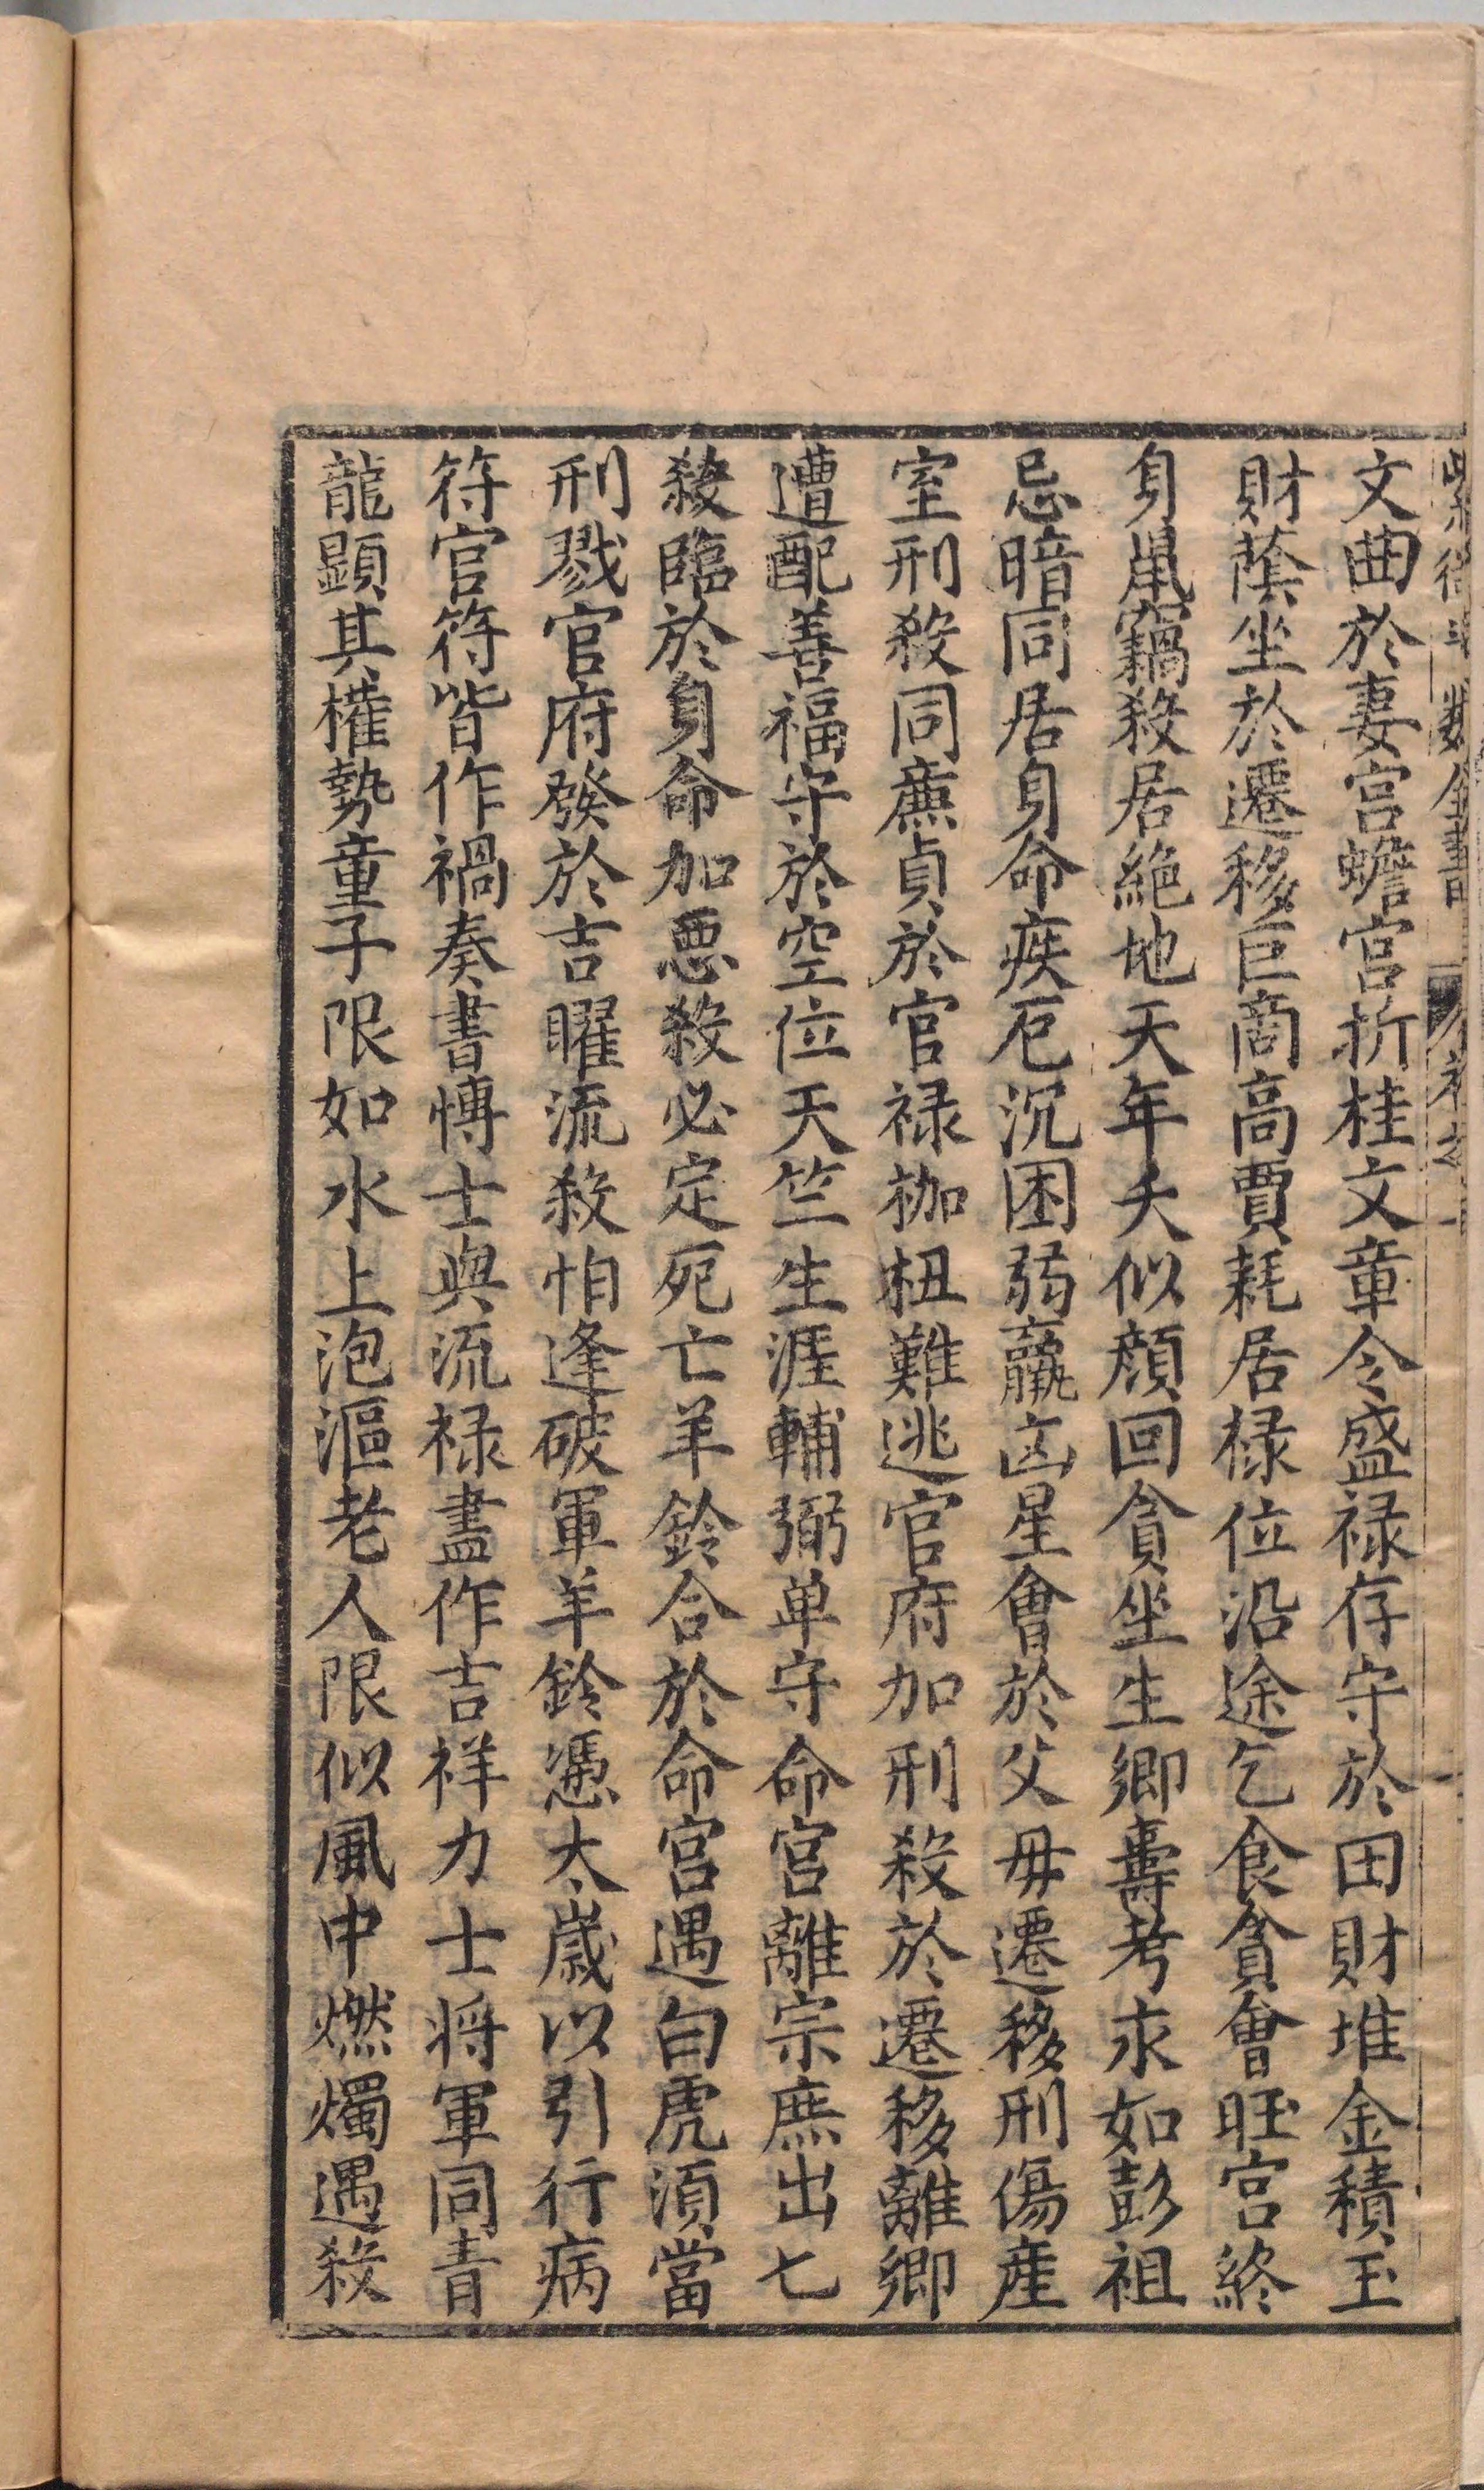 文曲於妻宮蟾宮折桂文章令盛禄存守於田財堆金積玉
財蔭坐於遷移巨商高賈耗居禄位沿途乞食貪會旺宮終
身鼠竊殺居絶地天年夭似顔回貪坐生鄉壽考求如彭祖
忌暗同居身命疾厄沉困弱羸凶星會於父母遷移刑傷産
室刑殺同廉貞於官禄枷杻難逃官府加刑殺於遷移離鄉
遭配善福守於空位天竺生涯輔弼单守命宮離宗庶出七
殺臨於身命加惡殺必定死亡羊鈴合於命宮遇白虎須當
刑戮官府發於吉曜流殺怕逢破軍羊鈴憑太歲以引行病
符官符皆作禍奏書博士與流禄盡作吉祥力士将軍同青
龍顕其權勢童子限如水上泡漚老人限似風中燃燭遇殺